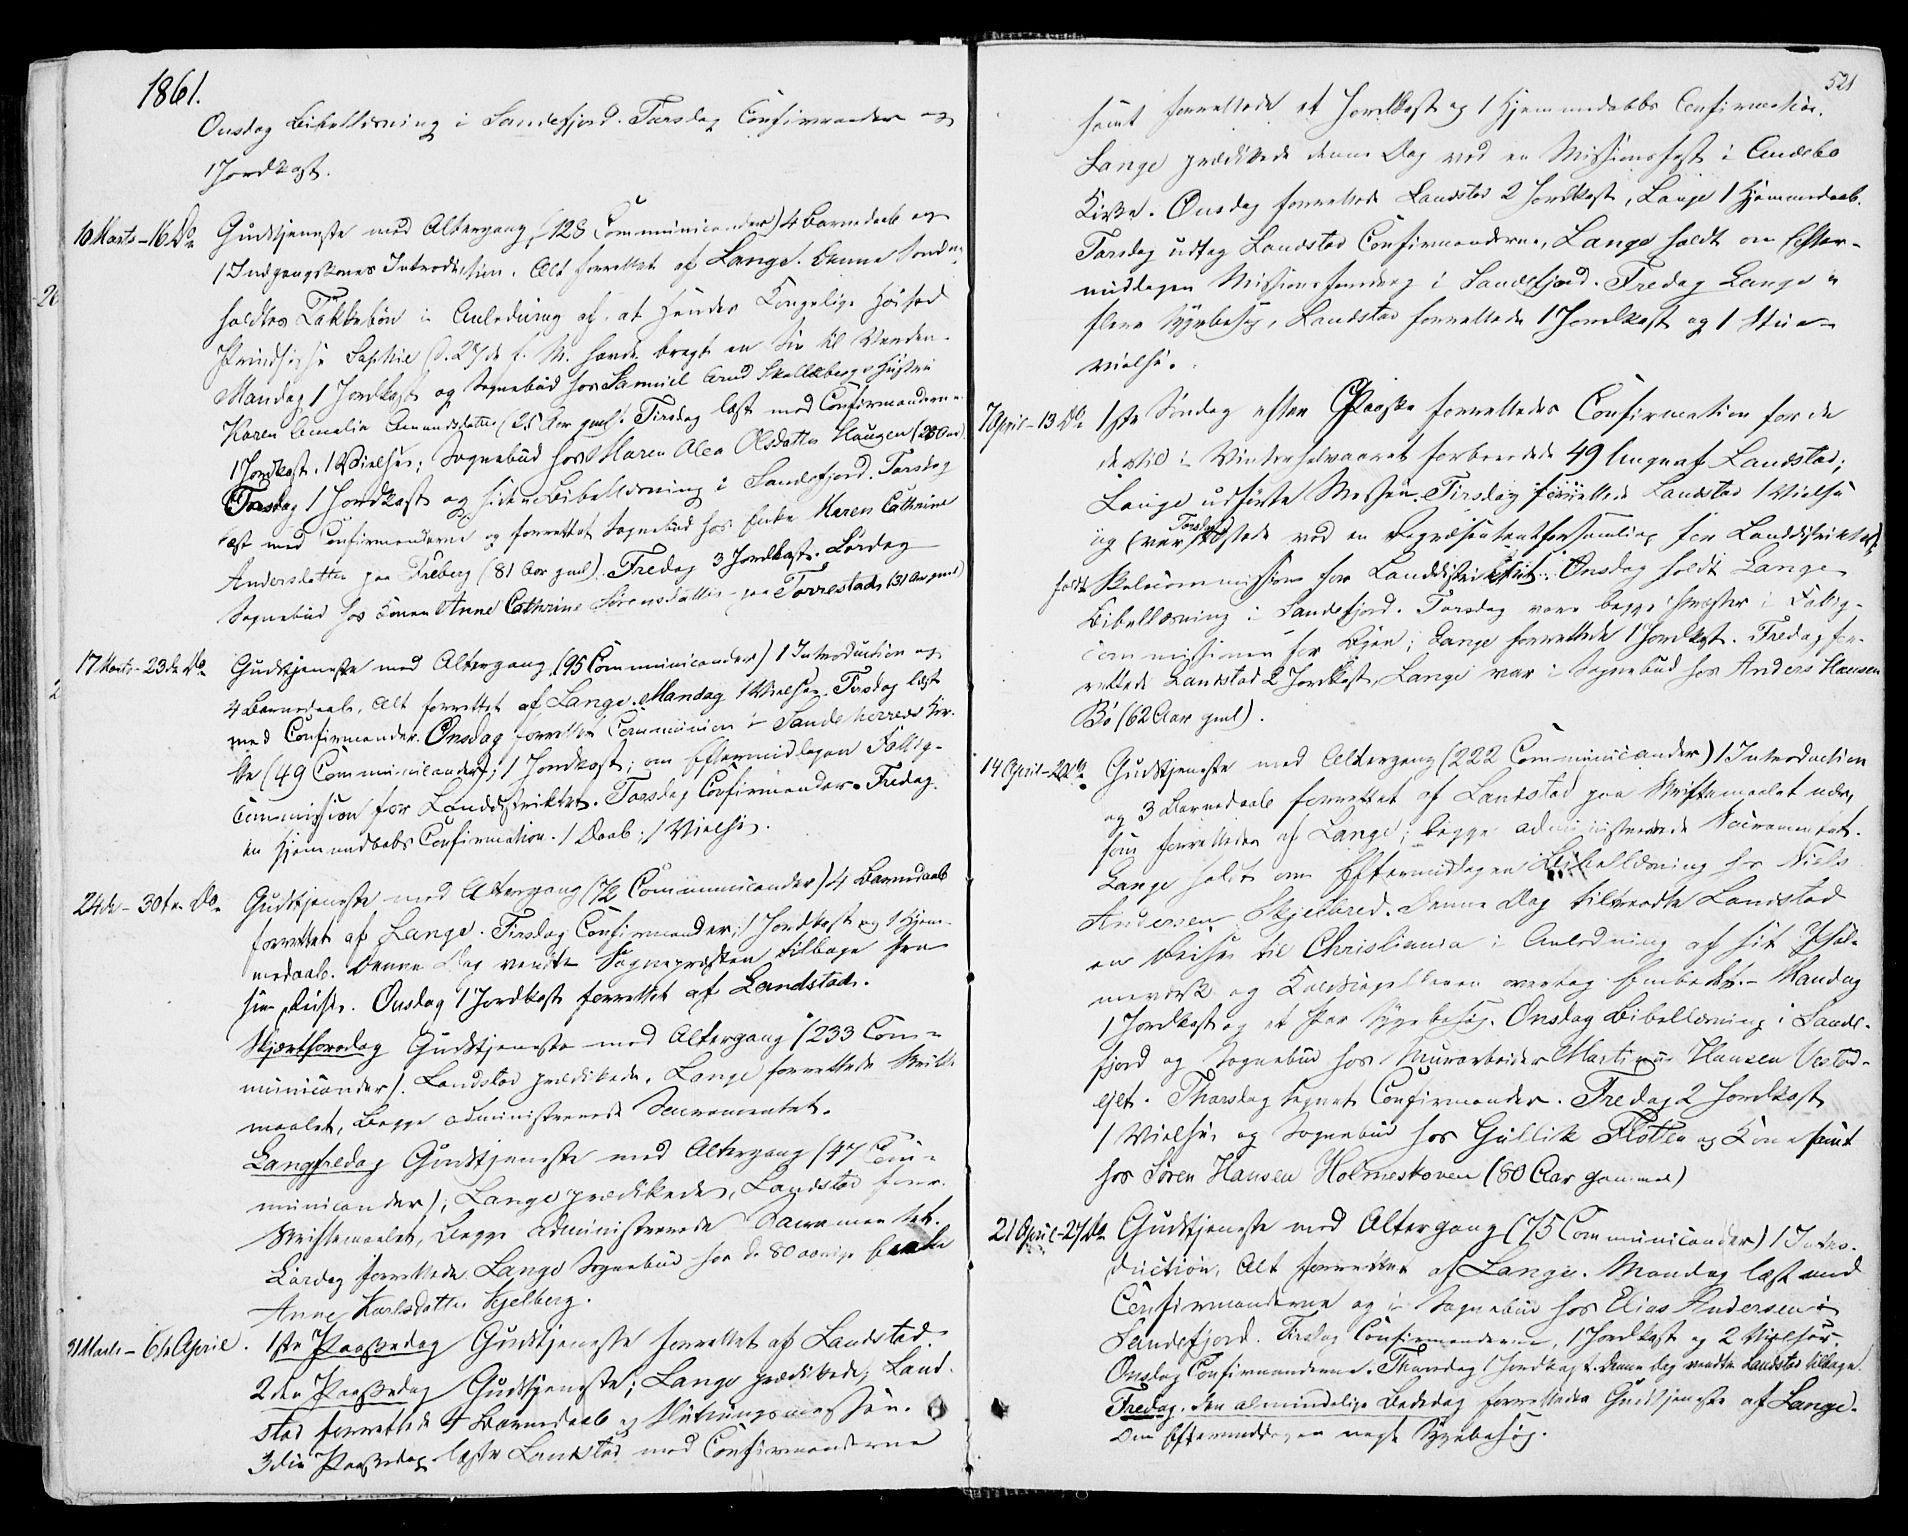 1861.
Onsdag Bibellæsning i Sandefjord. Torsdag Confirmander og
1 Jordkast.
10 Marts – 16 Do Gudstjeneste med Altergang, (128 Communicander) 4 Barnedaab og
1 Indgangskones Introduction. Alt forrettet af Lange. Denne Søndag
holdtes Takkebøn i Anledning af, at Hendes Kongelige Høihed
Prindsesse Sophie d. 27de f. M. havde bragt en Søn til Verden.
Mandag 1 Jordkast og Sognebud hos Samuel Skallebergs Hustru
Karen Amalia Amundsdatter (25 Aar gml). Tirsdag læst med Confirmanderne
1 Jordkast. 1 Vielse; Sognebud hos Maren Alea Olsdatter Haugen (28 Aar)
Onsdag 1 Jordkast og siden Bibellæsning i Sandefjord. Torsdag
læst med Confirmanderne og forrettet Sognebud hos Enke Maren Cathrine
Andersdatter paa Freberg (81 Aar gml). Fredag 3 Jordkast. Lørdag
Sognebud hos Konen Anne Cathrine Sørensdatter paa Torrestad (31 Aar gml)
17 Marts – 23de Do Gudstjeneste med Altergang (95 Communicander) 1 Introduction og
4 Barnedaab. Alt forrettet af Lange. Mandag 1 Vielse. Tirsdag læst
med Confirmander. Onsdag forrettet Communion i Sandeherreds Kir-
ke (49 Communicander); 1 Jordkast; om Eftermiddagen Fattig-
commission for Landdistriktet. Torsdag Confirmander. Fredag
en Hjemmedøbts Confirmation. 1 Daab; 1 Vielse.
24de – 30te Do Gudstjeneste med Altergang (72 Communicander) 4 Barnedaab
forrettet af Lange. Tirsdag Confirmander, 1 Jordkast og 1 Hjem-
medaab. Denne Dag vendte Sognepræsten tilbage fra
sin Reise. Onsdag 1 Jordkast forrettet af Landstad.
Skjærthorsdag Gudstjeneste med Altergang (233 Com-
municander). Landstad prædikede, Lange forrettede Skrifte
maalet, Begge administrerede Sacramentet.
Langfredag Gudstjeneste med Altergang (47 Com-
municander); Lange prædikede, Landstad forr.
Skriftemaalet, Begge administrerede Sacramentet.
Lørdag forrettede Lange Sognebud hos de 80 aarige
Anne Karlsdatter Kjelberg.
31 Marts – 6te April. 1ste Paaskedag Gudstjeneste forrettet af Landstad.
2den Paaskedag Gudstjeneste; Lange prædikede, Land-
stad forrettede 4 Barnedaab og Slutningsmessen.
3die Paaskedag læste Landstad med Confirmanderne
521
samt forrettede et Jordkast og 1 Hjemmedøbts Confirmation.
Lange prædikede denne Dag ved en Missionsfest i Andebo
Kirke. Onsdag forrettede Landstad 2 Jordkast, Lange 1 Hjemmedaab.
Torsdag udtog Landstad Confirmanderne, Lange holdt om Efter-
middagen Missionsforedrag i Sandefjord. Fredag Lange i
flere Sygebesøg, Landstad forrettede 1 Jordkast og 1 Stue-
vielse.
7 April – 13 Do 1ste Søndag efter Paaske forrettedes Confirmation for de
dertil i Vinterhalvaaret forberedede 49 Unge af Landstad;
Lange udførte Messen. Tirsdag forrettede Landstad 1 Vielse
og (var tilstede ved en Repræsentantforsamling for Landdistriktet)
Torsdag
holdt Skolecommission for Landdistriktet. Onsdag holdt Lange
Bibellæsning i Sandefjord. Torsdag vare begge Præster i Fattig-
commissionen for Byen; Lange forrettede 1 Jordkast. Fredag for-
rettede Landstad 2 Jordkast, Lange var i Sognebud hos Anders Hansen
Bø (62 Aar gml).
14 April – 20de Gudstjeneste med Altergang (222 Communicander) 1 Introduction
og 3 Barnedaab forrettet af Landstad paa Skriftemaalet nær,
som forrettedes af Lange; begge administrerede Sacramentet.
Lange holdt om Eftermiddagen Bibellæsning hos Niels
Andersen Skjelbred. Denne Dag tiltraadte Landstad
en Reise til Christiania i Anledning af sit Psal-
meværk og Kaldscapellanen overtog Embedet. – Mandag
1 Jordkast og et Par Sygebesøg. Onsdag Bibellæsning i Sande-
fjord og Sognebud hos Murarbeider Martinus Hansen Vestad-
ejet. Thorsdag tegnet Confirmander. Fredag 2 Jordkast
1 Vielse og Sognebud hos Gullik Flotten og Kone samt
hos Søren Hansen Holmeskoven (80 Aar gammel)
21 April – 27de Gudstjeneste med Altergang (75 Communicander) 1 Intro-
duction. Alt forrettet af Lange. Mandag læst med
Confirmanderne og i Sognebud hos Elias Andersen i
Sandefjord. Tirsdag Confirmanderne, 1 Jordkast og 2 Vielser
Onsdag Confirmanderne. Thorsdag 1 Jordkast. Denne Dag vendte Landstad tilbage.
Fredag, den almindelige Bededag forrettedes Gudstjeneste af Lange.
Om Eftermiddagen nogle Sygebesøg.